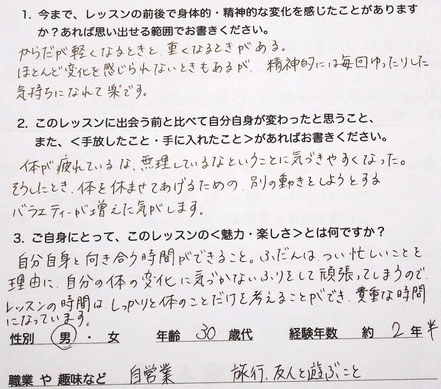 1. 今まで、レッスンの前後で身体的・精神的な変化を感じたことがあります
か?あれば思い出せる範囲でお書きください。
からだが軽くなるときと、重くなるときがある。
ほとんど変化を感じられないときもあるが、精神的には毎回ゆったりした
気持ちになれて楽です。
2. このレッスンに出会う前と比べて自分自身が変わったと思うこと、
また、<手放したこと・手に入れたこと>があればお書きください。
体が疲れているな、無理しているなということに気づきやすくなった。
そうしたとき、体を休ませてあげるための、別の動きをしようとする
バラエティーが増えた気がします。
3. ご自身にとって、このレッスンの<魅力・楽しさ>とは何ですか?
自分自身と向き合う時間ができること。ふだんは、つい忙しいことを
理由に、自分の体の変化に気づかないふりをして頑張ってしまうので
レッスンの時間は、しっかりと体のことだけを考えることができ、貴重な時間
になっています。
性別 男・女 年齢 30歳代 経験年数 約2年半
職業や趣味など 自営業 旅行、友人と遊ぶこと